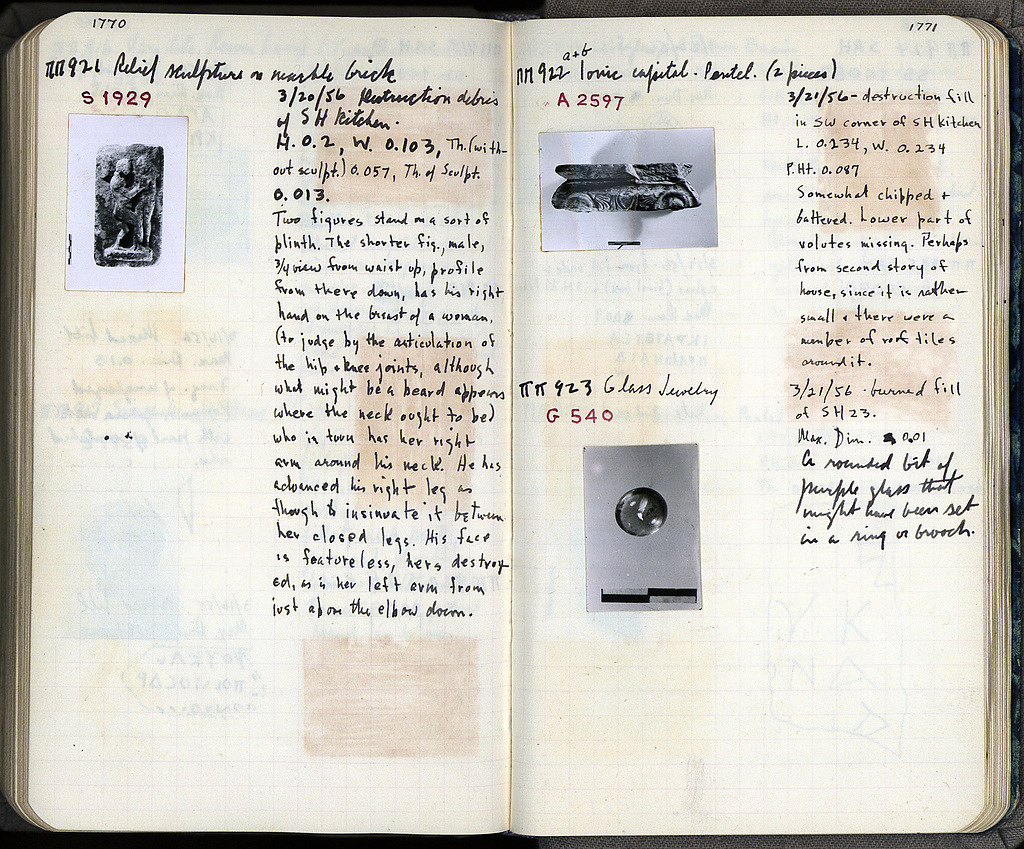 1770
ΠΠ921 Relief sculpture on marble brick
S 1929
3/20/56 Destruction debris
of SH Kitchen.
H. 0.2, W. 0.103, Th. (with-
out sculpt.) 0.057, Th. of Sculpt.
0.013.
Two figures stand on a sort of
plinth. The shorter fig., male,
3/4 view from waist up, profile
from there down, has his right
hand on the breast of a woman,
(to judge by the articulation of
the hip & knee joints, although
what might be a beard appears
where the neck ought to be)
who in turn has her right
arm around his neck. He has
advanced his right leg as
though to insinuate it between
her closed legs. His face
is featureless, hers destroy-
ed, as is her left arm from
just above the elbow down.
1771
ΠΠ922 a+b Ionic capital. Pentel. (2 pieces)
A 2597
3/21/56 - destruction fill
in SW corner of SH kitchen
L. 0.234, W. 0.234
P.Ht. 0.087
Somewhat chipped +
battered. Lower part of
volutes missing. Perhaps
from second story of
house, since it is rather
small + there were a
number of roof tiles
around it.
ΠΠ 923 Glass Jewelry
G 540
3/21/56 - burned fill
of SH 23.
Max. Dim. 0.01
A rounded bit of
purple glass that
might have been set
in a ring or brooch.